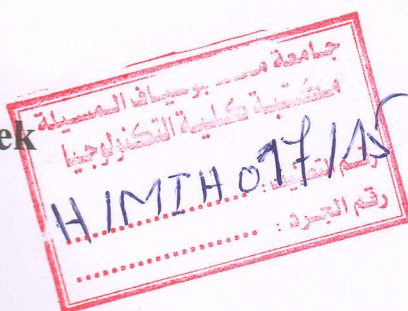 ek
جامعة محمد بوضياف المسيلة
مكتبة كلية التكنولوجيا
رقم التصنيف : H/MIH017/15
رقم الجرد :